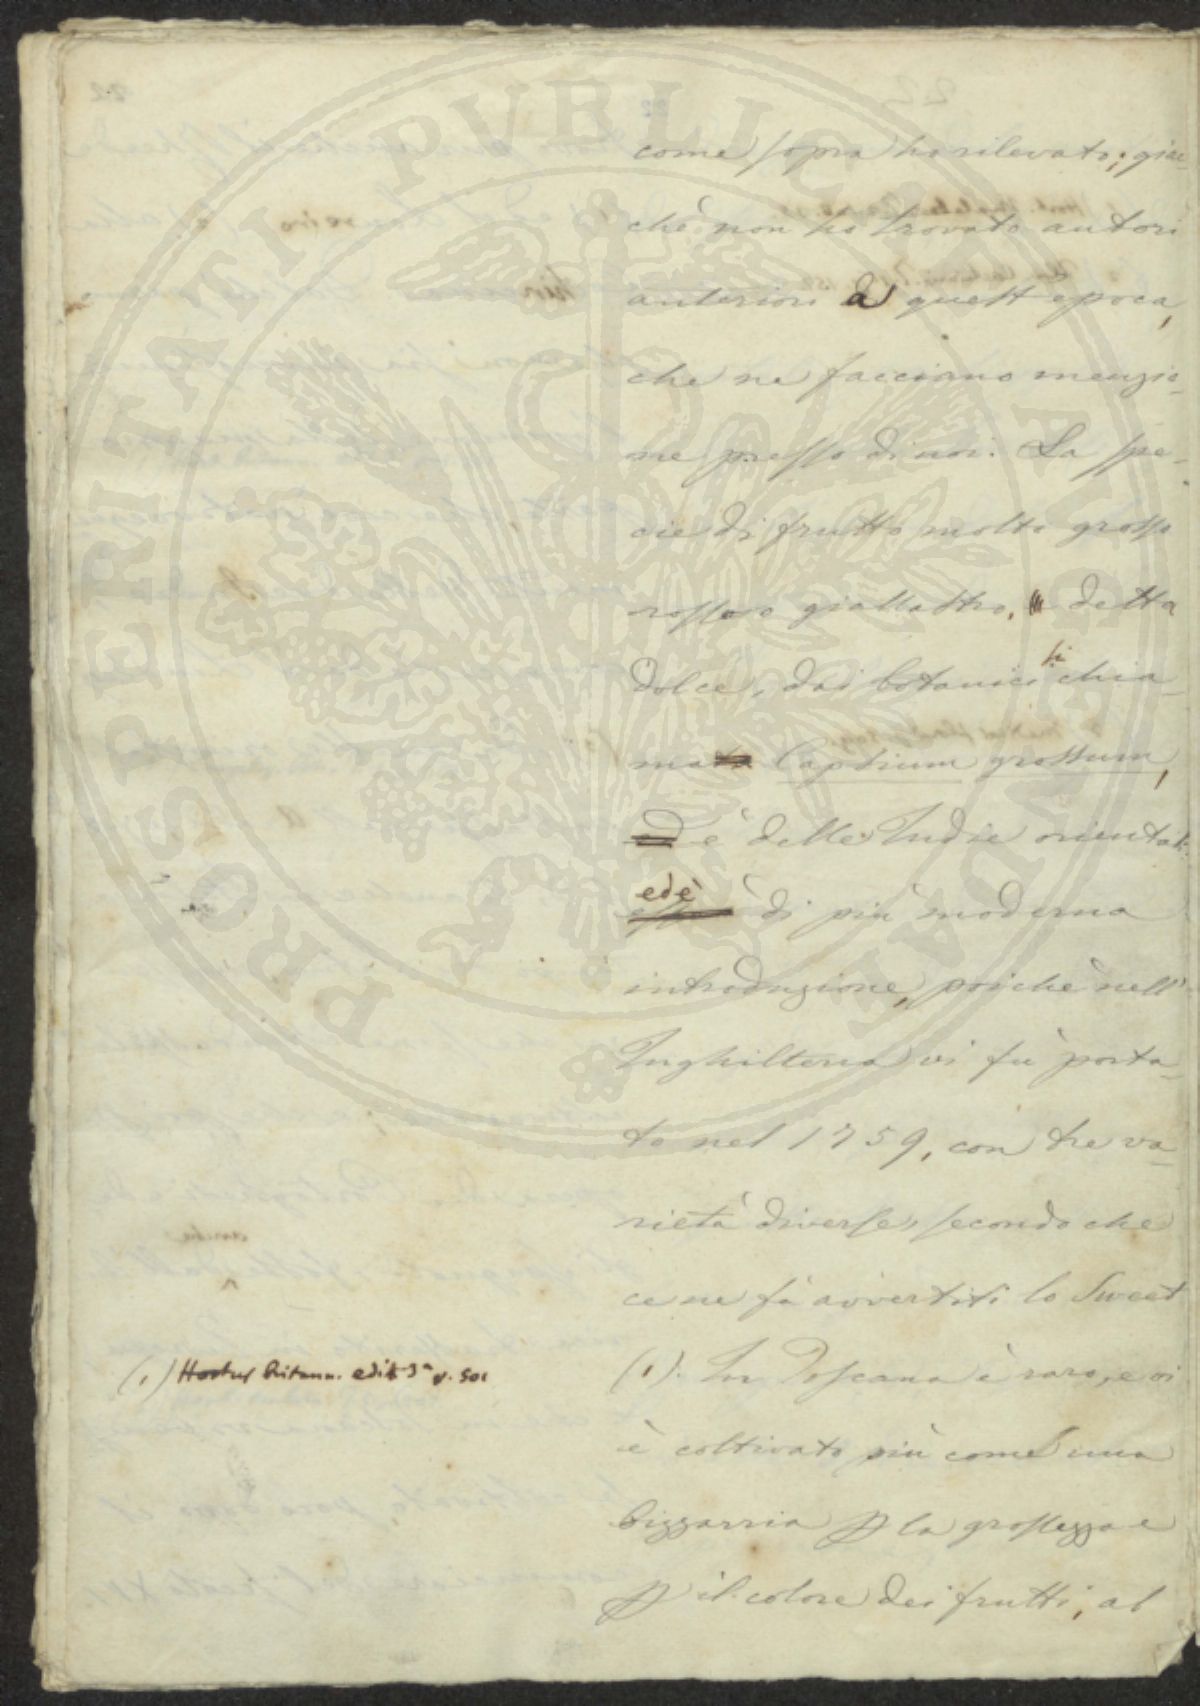 come sopra ho rilevato; giac-
chè non ho trovato autori
anteriori a quest'epoca,
che ne facciano menzio-
ne presso di noi. La spe-
cie di frutto molto grosso
rosso o giallastro, detta
dolce, dai botanici si chia-
mata Capsicum grossum,
ed è delle Indie orientali
ed è
è di più moderna
introduzione, poichè nell'
Inghilterra vi fù porta-
to nel 1759, con tre va-
rietà diverse, secondo che
ce ne fà avvertiti lo Sweet
(1). In Toscana è raro, e vi
è coltivato più come una
bizzarria p la grossezza e
p il colore dei frutti, al
(1) Hortus Britann. edit 3a p. 501
PROSPERITATI PUBLICAE AUGENDAE